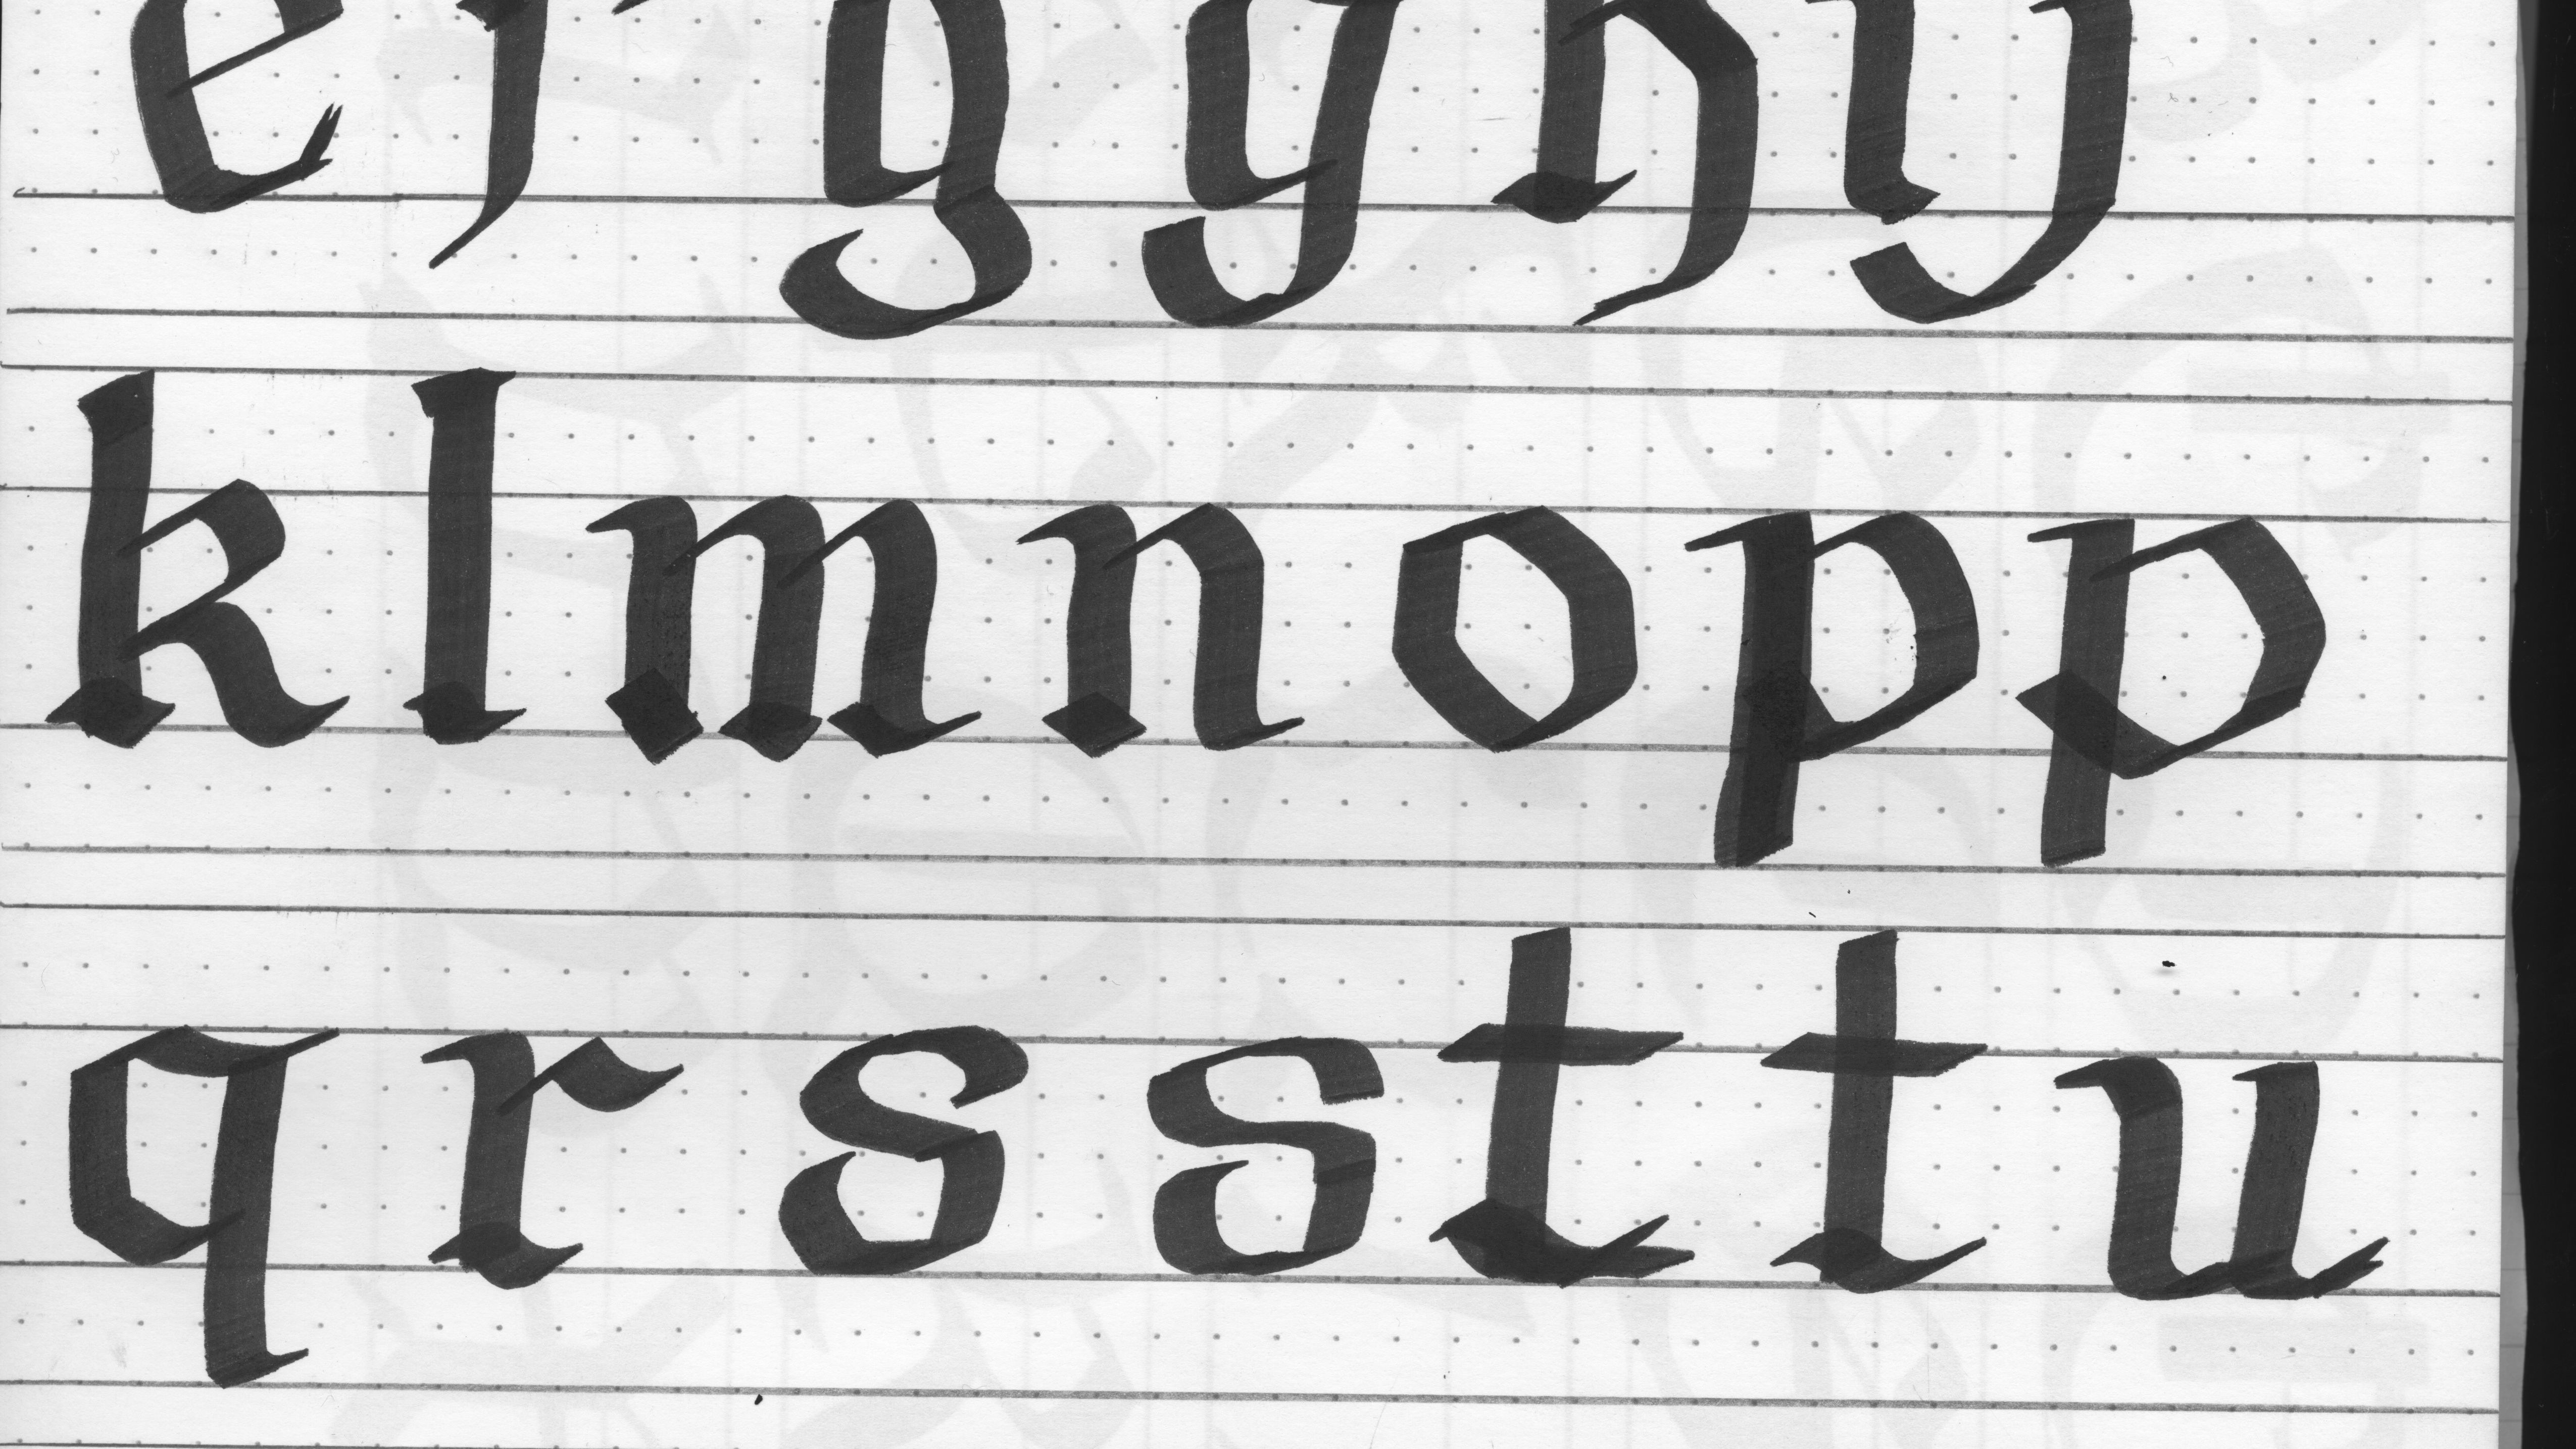 e f g g h i j
k l m n o p p
q r s s t t u